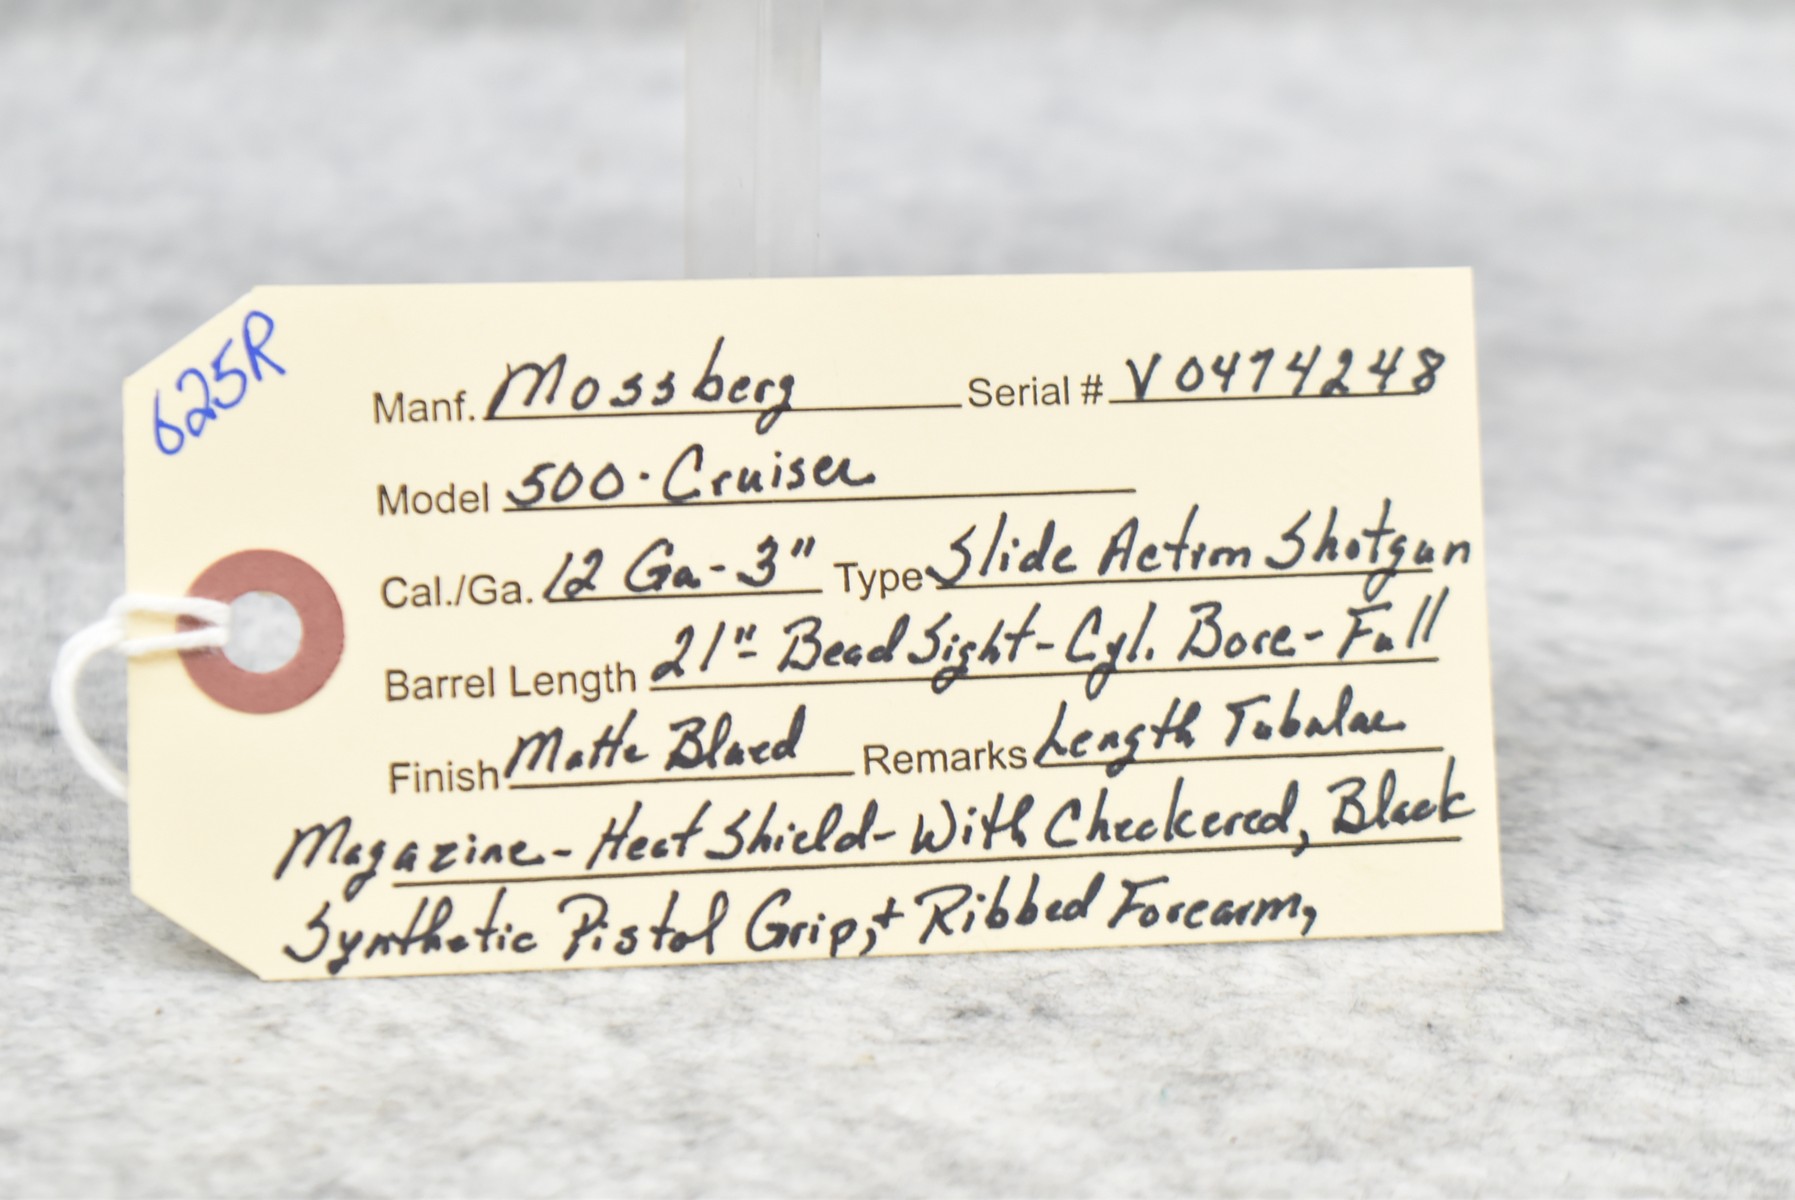 625R
Manf. Mossberg Serial # V0474248
Model 500 · Cruiser
Cal./Ga. 12 Ga - 3" Type Slide Action Shotgun
Barrel Length 21" - Bead Sight - Cyl. Bore - Full
Finish Matte Blued Remarks Length Tubular
Magazine - Heat Shield - With Checkered, Black
Synthetic Pistol Grip, + Ribbed Forearm,